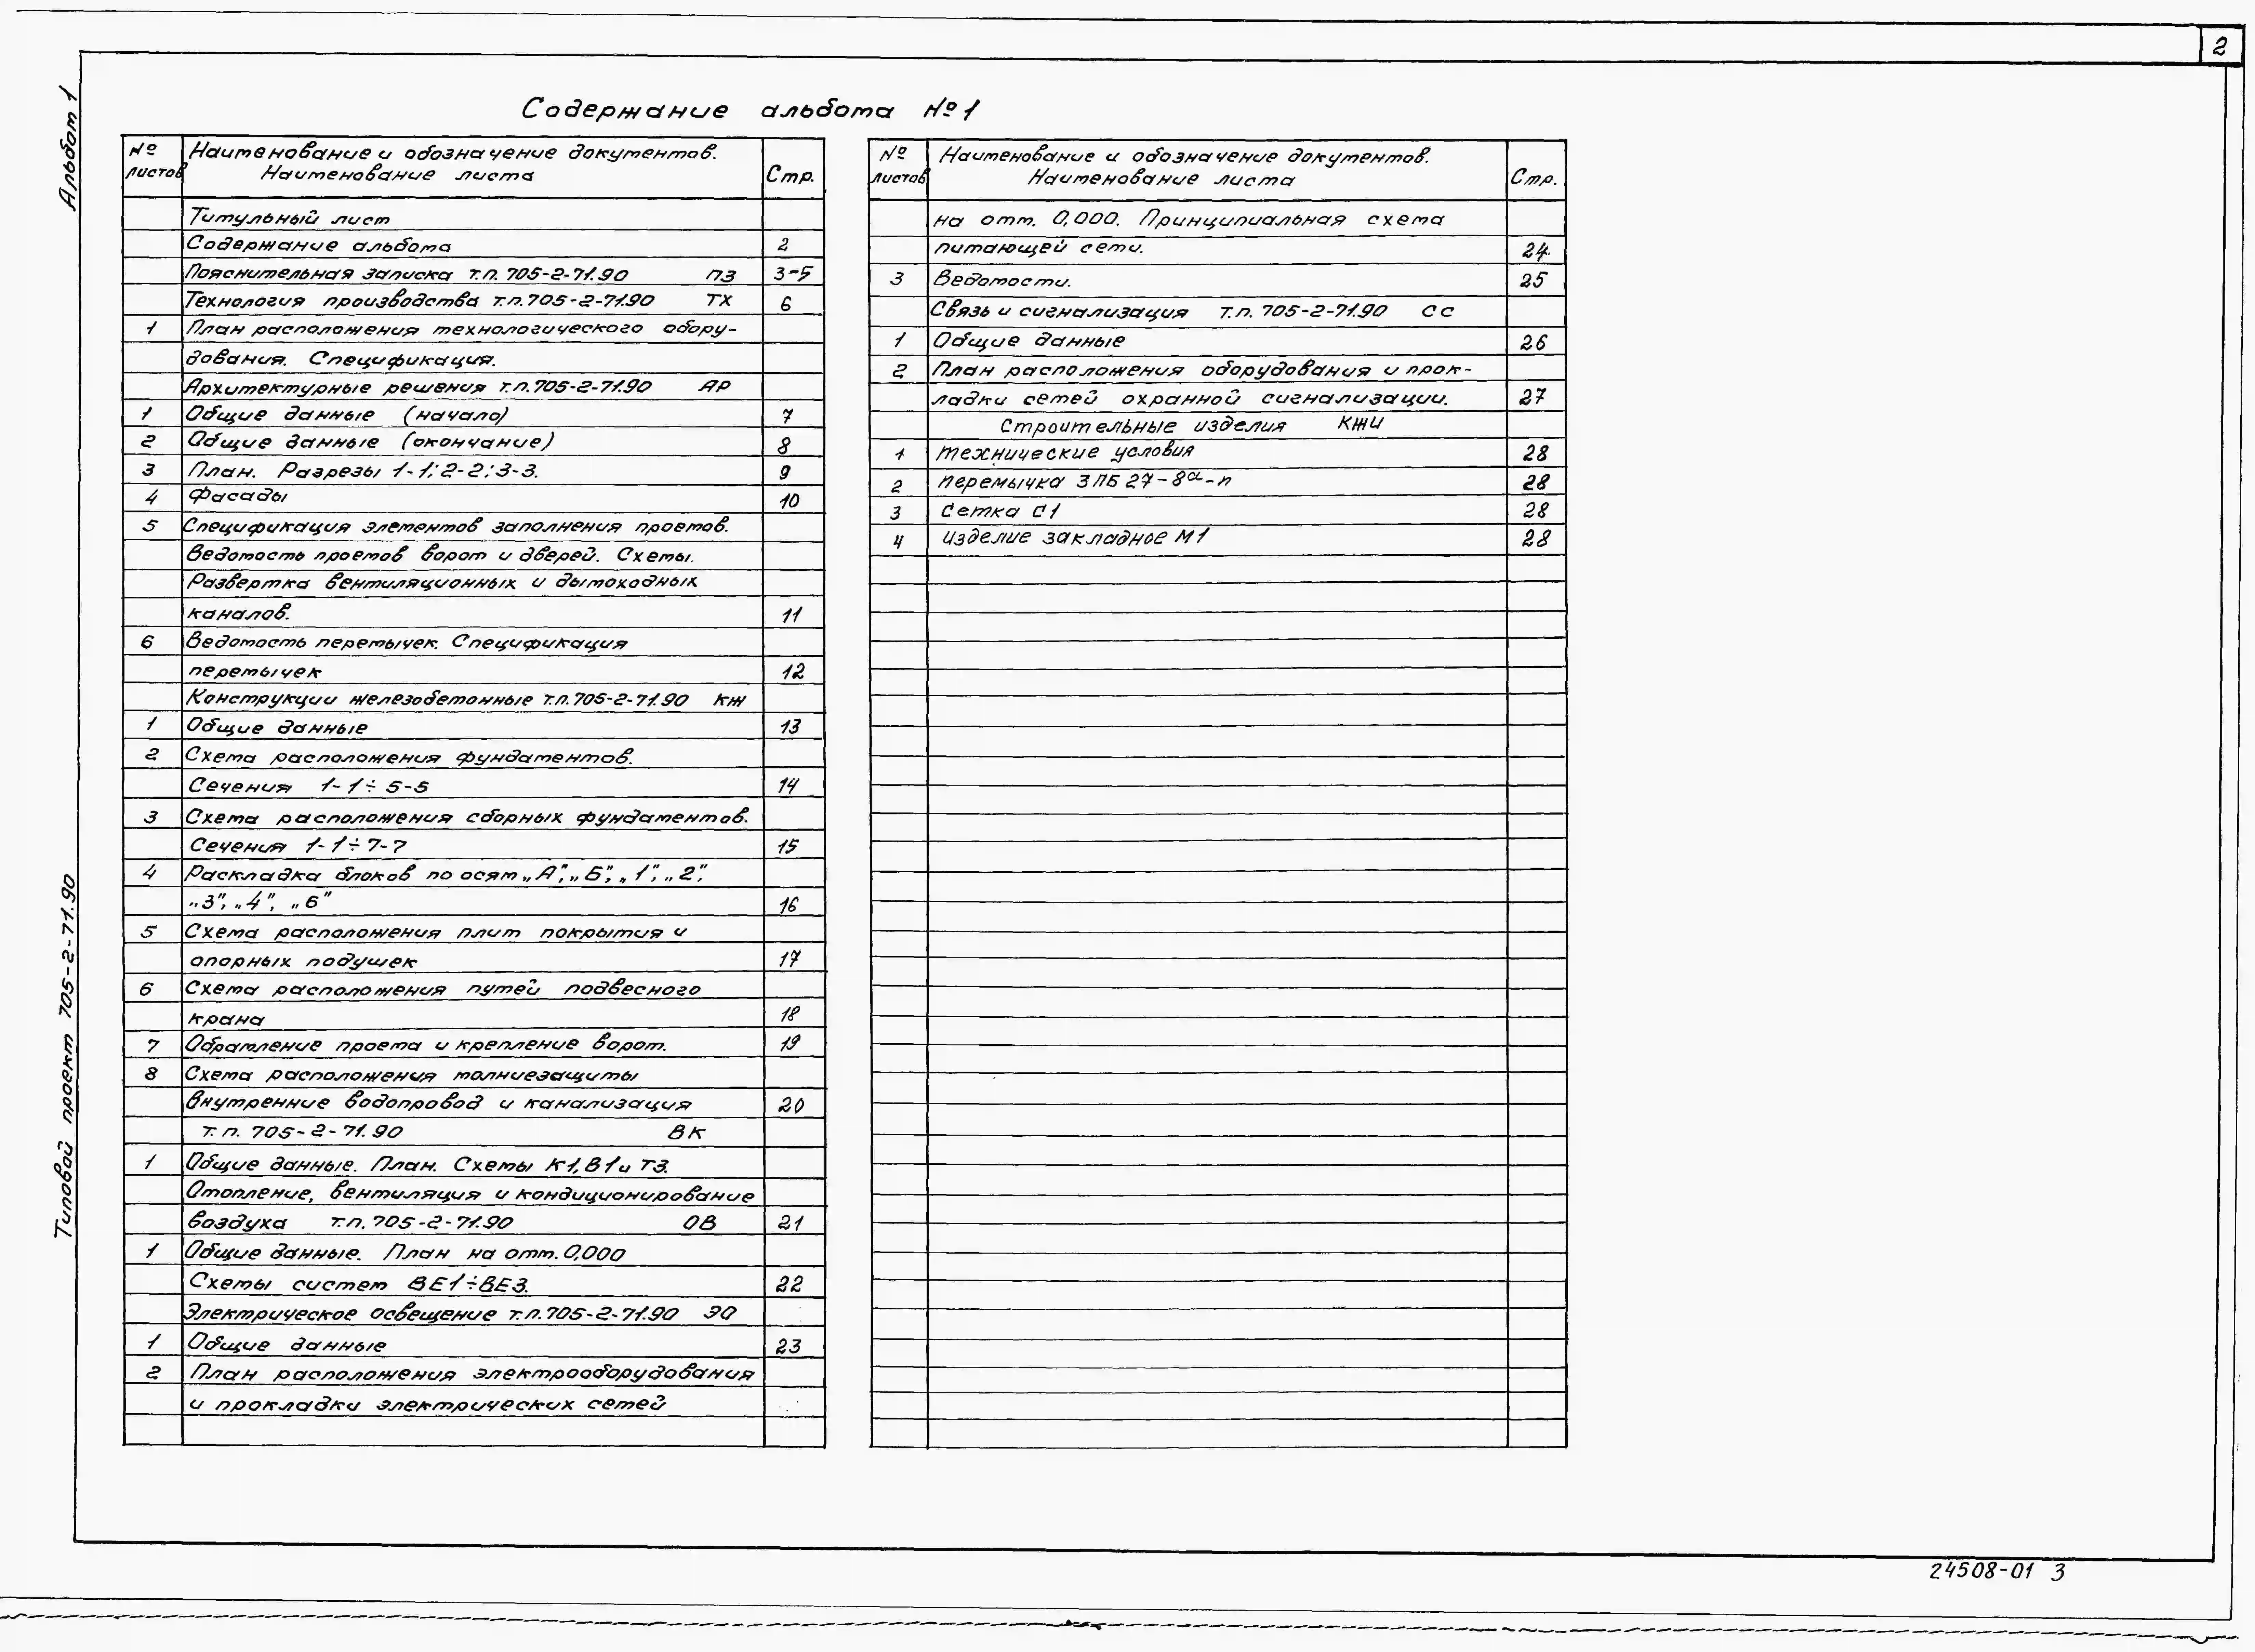 2
Альбом 1
Содержание альбома № 1
№ листов Наименование и обозначение документов. Наименование листа Стр.
Титульный лист
Содержание альбома 2
Пояснительная записка т.п. 705-2-71.90 ПЗ 3-5
Технология производства т.п. 705-2-71.90 ТХ 6
1 План расположения технологического обору-
дования. Спецификация.
Архитектурные решения т.п. 705-2-71.90 АР
1 Общие данные (начало) 7
2 Общие данные (окончание) 8
3 План. Разрезы 1-1; 2-2; 3-3. 9
4 Фасады 10
5 Спецификация элементов заполнения проемов.
Ведомость проемов ворот и дверей. Схемы.
Развертка вентиляционных и дымоходных
каналов. 11
6 Ведомость перемычек. Спецификация
перемычек 12
Конструкции железобетонные т.п. 705-2-71.90 КЖ
1 Общие данные 13
2 Схема расположения фундаментов.
Сечения 1-1÷5-5 14
3 Схема расположения сборных фундаментов.
Сечения 1-1÷7-7 15
4 Раскладка блоков по осям „А", „Б", „1", „2",
„3", „4", „6" 16
5 Схема расположения плит покрытия и
опорных подушек 17
6 Схема расположения путей подвесного
крана 18
7 Обрамление проема и крепление ворот. 19
8 Схема расположения молниезащиты
Внутренние водопровод и канализация 20
т.п. 705-2-71.90 ВК
1 Общие данные. План. Схемы К1, В1 и Т3.
Отопление, вентиляция и кондиционирование
воздуха т.п. 705-2-71.90 ОВ 21
1 Общие данные. План на отм. 0,000
Схемы систем ВЕ1÷ВЕ3. 22
Электрическое освещение т.п. 705-2-71.90 ЭО
1 Общие данные 23
2 План расположения электрооборудования
и прокладки электрических сетей
№ листов Наименование и обозначение документов. Наименование листа Стр.
на отм. 0,000. Принципиальная схема
питающей сети. 24
3 Ведомости. 25
Связь и сигнализация т.п. 705-2-71.90 СС
1 Общие данные 26
2 План расположения оборудования и прок-
ладки сетей охранной сигнализации. 27
Строительные изделия КЖИ
1 Технические условия 28
2 Перемычка 3ПБ 27-8а-п 28
3 Сетка С1 28
4 Изделие закладное М1 28
Типовой проект 705-2-71.90
24508-01 3